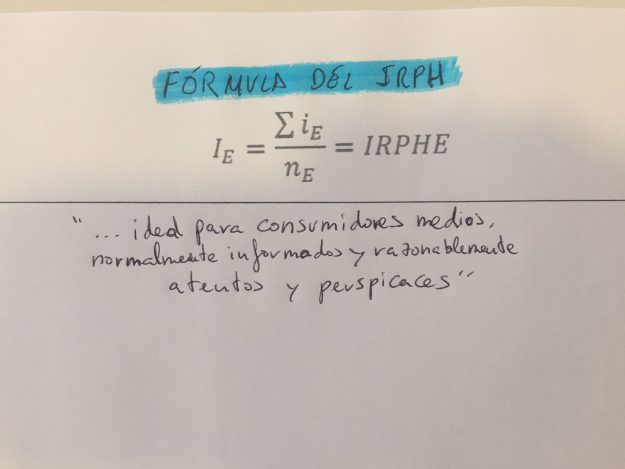 FÓRMULA DEL IRPH
I_E = ∑ i_E / n_E = IRPHE
"... ideal para consumidores medios,
normalmente informados y razonablemente
atentos y perspicaces"